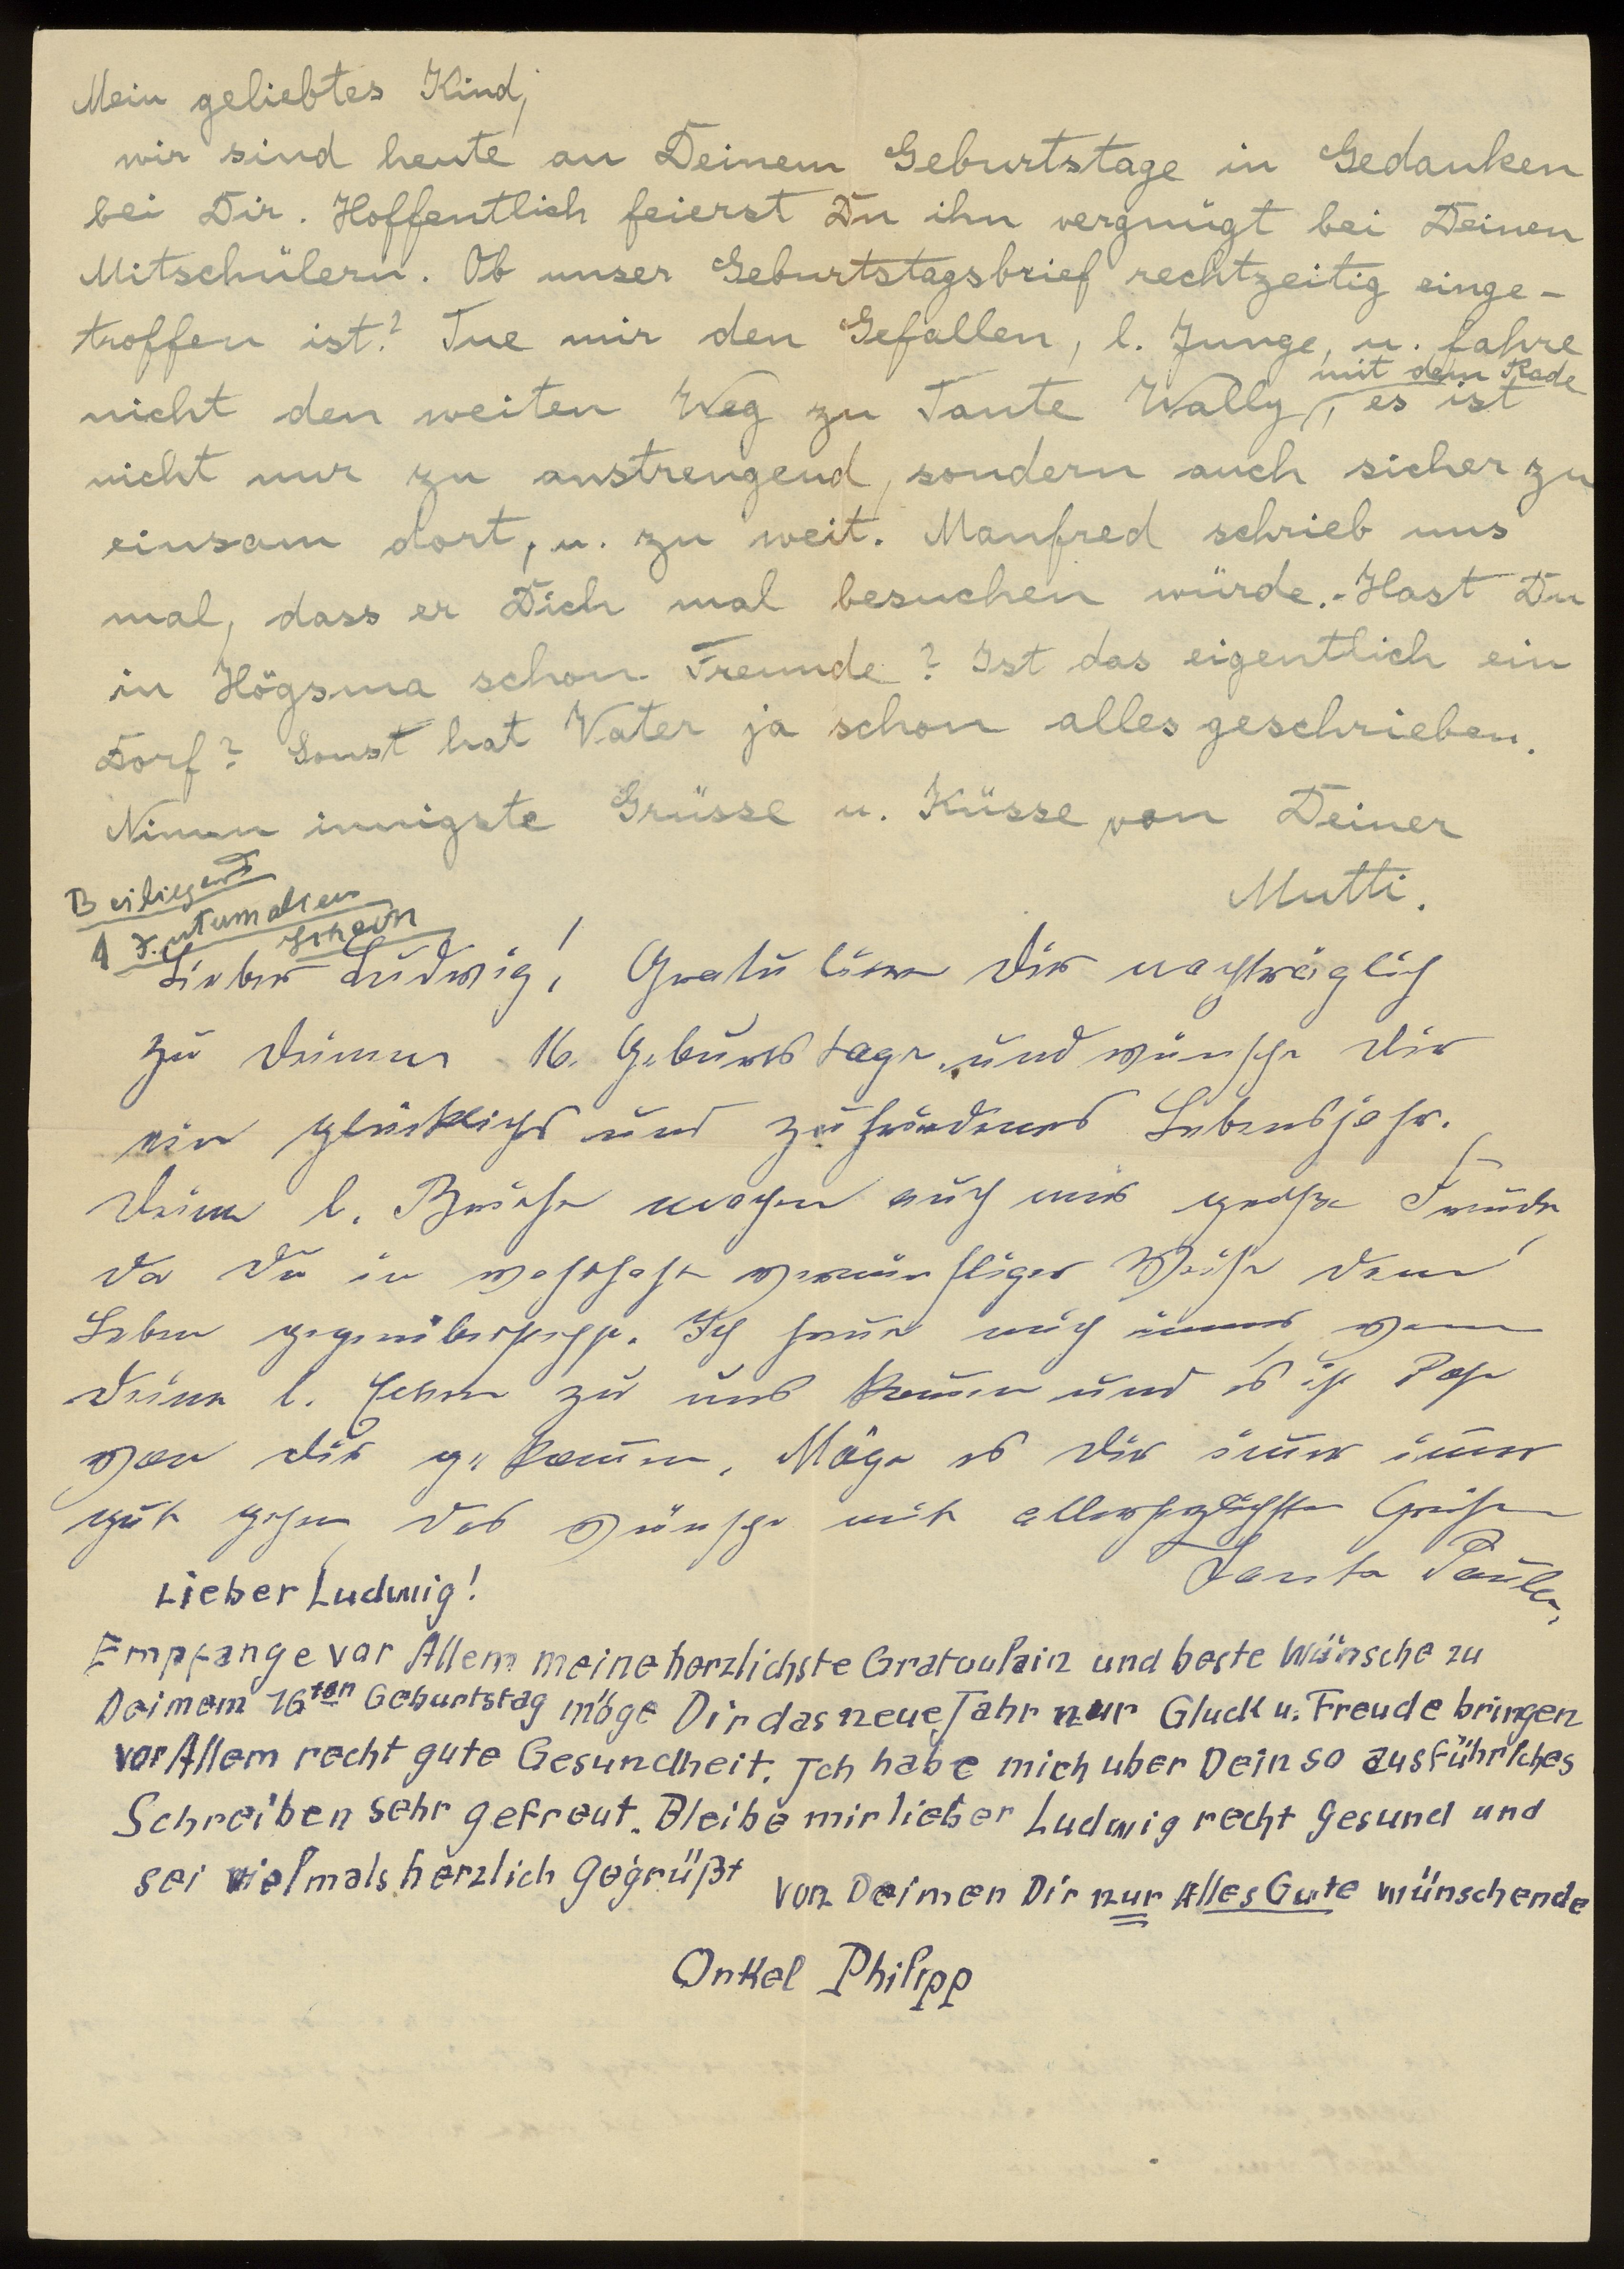 Mein geliebtes Kind,
wir sind heute an Deinem Geburtstage in Gedanken
bei Dir. Hoffentlich feierst Du ihn vergnügt bei Deinen
Mitschülern. Ob unser Geburtstagsbrief rechtzeitig einge-
troffen ist? Tue mir den Gefallen, l. Junge, u. fahre
mit dem Rade
nicht den weiten Weg zu Tante Wally, es ist
nicht nur zu anstrengend, sondern auch sicher zu
einsam dort, u. zu weit. Manfred schrieb uns
mal, dass er Dich mal besuchen würde.- Hast Du
in Högsma schon Freunde? Ist das eigentlich ein
Dorf? Sonst hat Vater ja schon alles geschrieben.
Nimm innigste Grüsse u. Küsse von Deiner
Mutti.
Beiliegend
1
schein
Lieber Ludwig! Gratuliere Dir nachträglich
zu Deinem 16. Geburtstage und wünsche Dir
ein glückliches und zufriedenes Lebensjahr.
Deine l. Briefe machen auch mir große Freude
da Du in wahrhaft vernünftiger Weise dem
Leben gegenüberstehst. Ich freue mich immer wenn
Deine l. Eltern zu uns kommen und es ist Post
von Dir gekommen. Möge es Dir immer immer
gut gehen das wünscht mit allerherzlichsten Grüßen
Tante Paula.
Lieber Ludwig!
Empfange vor Allem meine herzlichste Gratoulain und beste Wünsche zu
Deimem 16ten Geburtstag möge Dir das neue Jahr nur Gluck u. Freude bringen
vor Allem recht gute Gesundheit. Jch habe mich uber Dein so ausführliches
Schreiben sehr gefreut. Bleibe mir lieber Ludwig recht gesund und
sei vielmals herzlich gegrüßt von Deimen Dir nur Alles Gute wünschende
Onkel Philipp